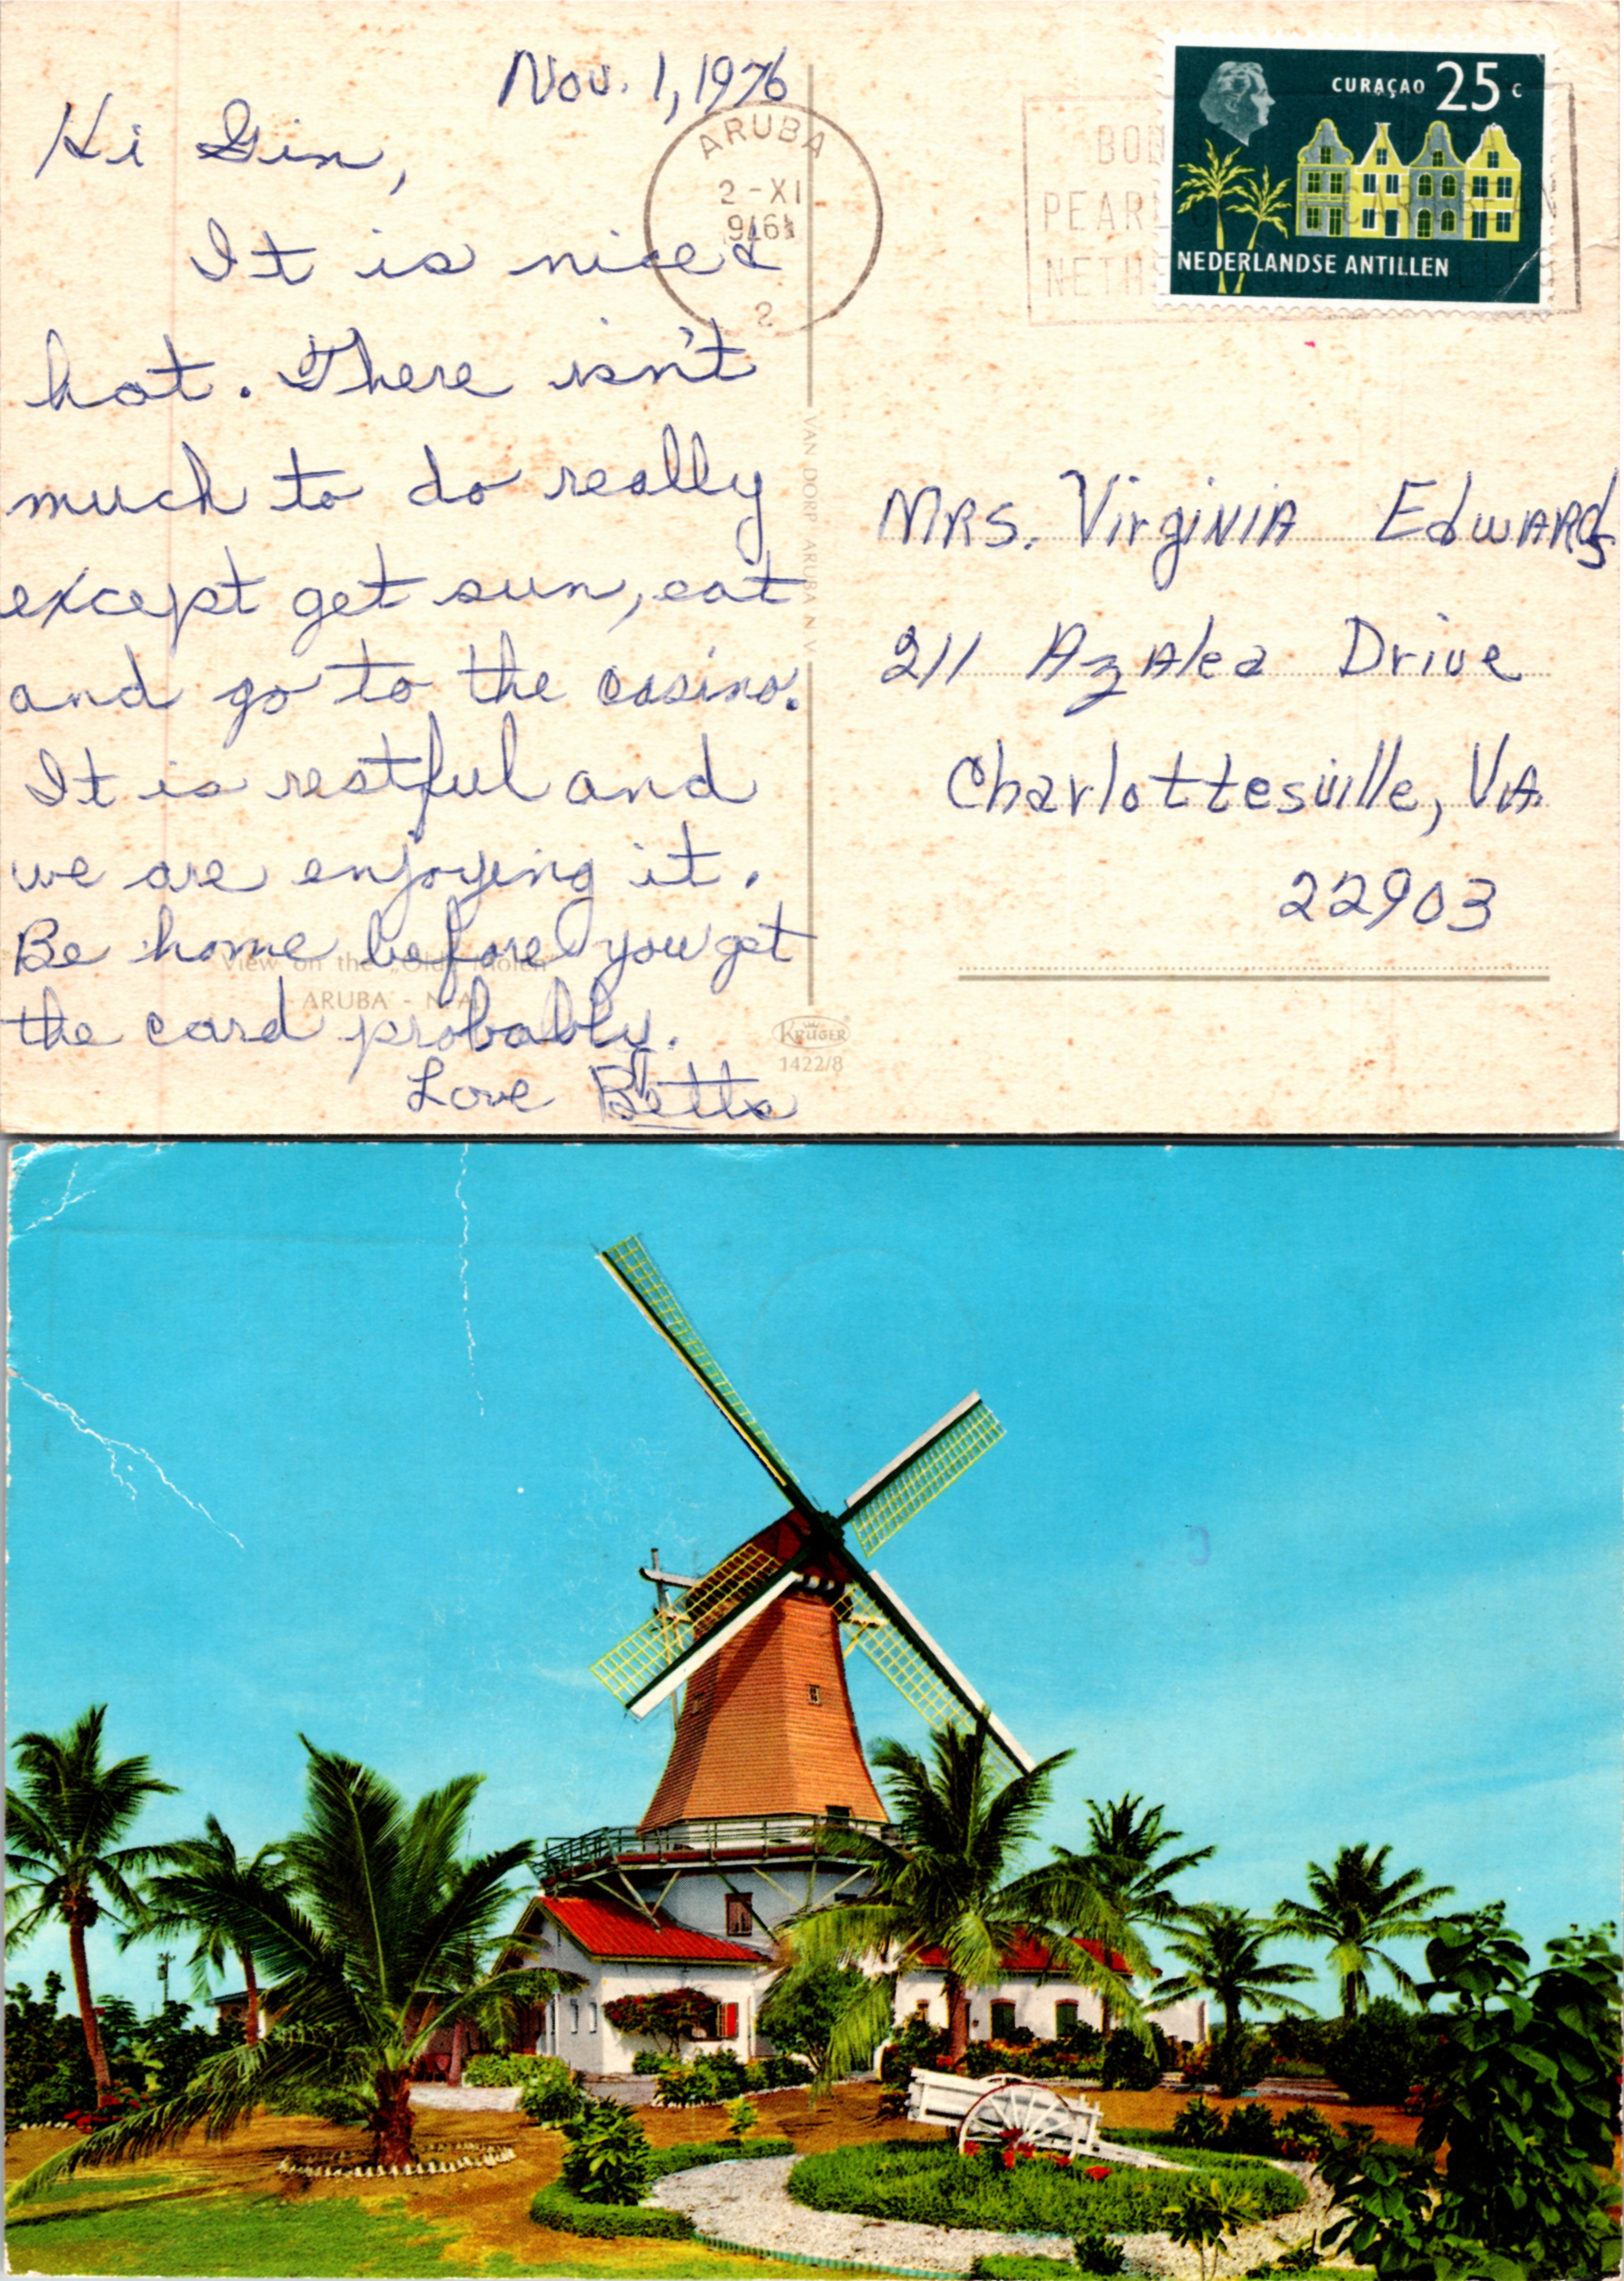 Nov. 1, 1976
Hi Gin,
It is nice &
hot. There isn't
much to do really
except get sun, eat
and go to the casino.
It is restful and
we are enjoying it.
Be home before you get
the card probably.
Love Betts
ARUBA
2-XI
1976
2
CURAÇAO 25 c
NEDERLANDSE ANTILLEN
PEARL CARIBBEAN
VAN DORP ARUBA N.V.
Mrs. Virginia Edwards
211 Azalea Drive
Charlottesville, VA
22903
View on the „Olde Molen"
ARUBA - N.A.
KRÜGER
1422/8